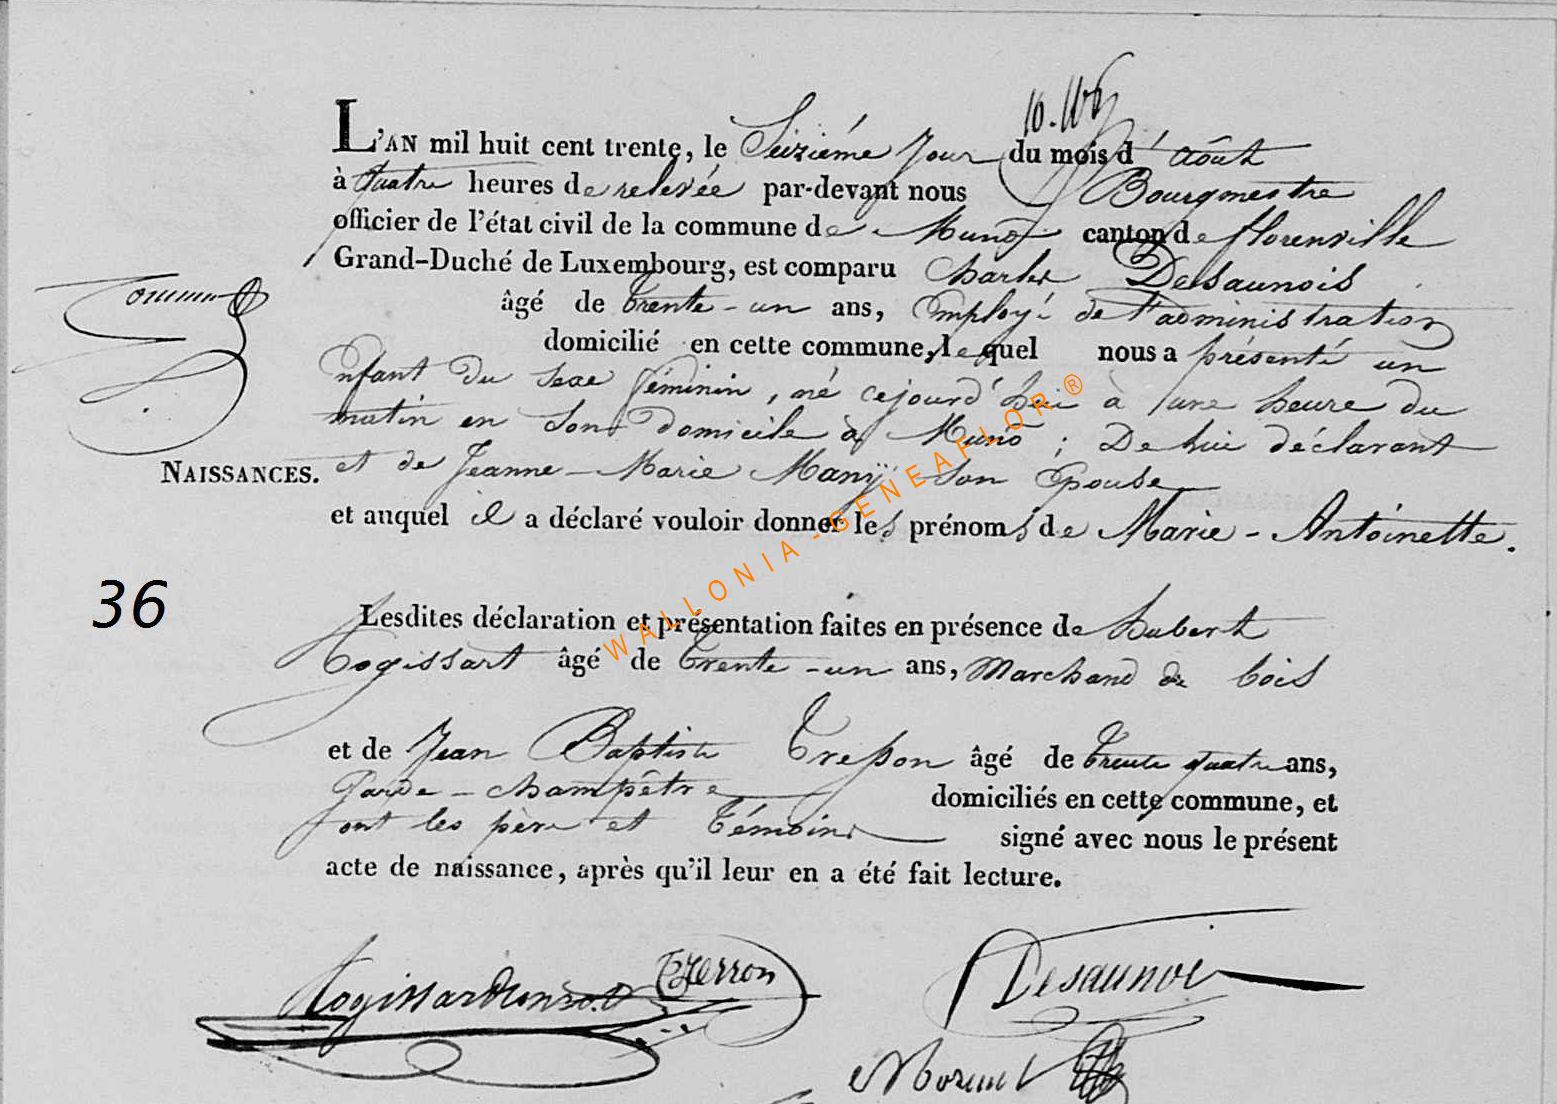 L'AN mil huit cent trente, le Seizième Jour du mois d'Aôut
à quatre heures de relevée par-devant nous Bourgmestre
officier de l'état civil de la commune de Muno canton de florenville
Grand-Duché de Luxembourg, est comparu Charles Desaunois
âgé de trente-un ans, Employé de l'administration
domicilié en cette commune, lequel nous a présenté un
Enfant du sexe féminin, né cejourd'hui à une heure du
matin en son domicile à Muno ; De lui déclarant
NAISSANCES. et de Jeanne-Marie Manÿ son Epouse
et auquel il a déclaré vouloir donner les prénoms de Marie-Antoinette.
WALLONIA-GENEAFLOR®
36
Lesdites déclaration et présentation faites en présence de hubert
Rogissart âgé de trente-un ans, Marchand de bois
et de Jean Baptiste âgé de trente quatre ans,
Garde-champêtre domiciliés en cette commune, et
ont les père et témoins signé avec nous le présent
acte de naissance, après qu'il leur en a été fait lecture.
Desaunois